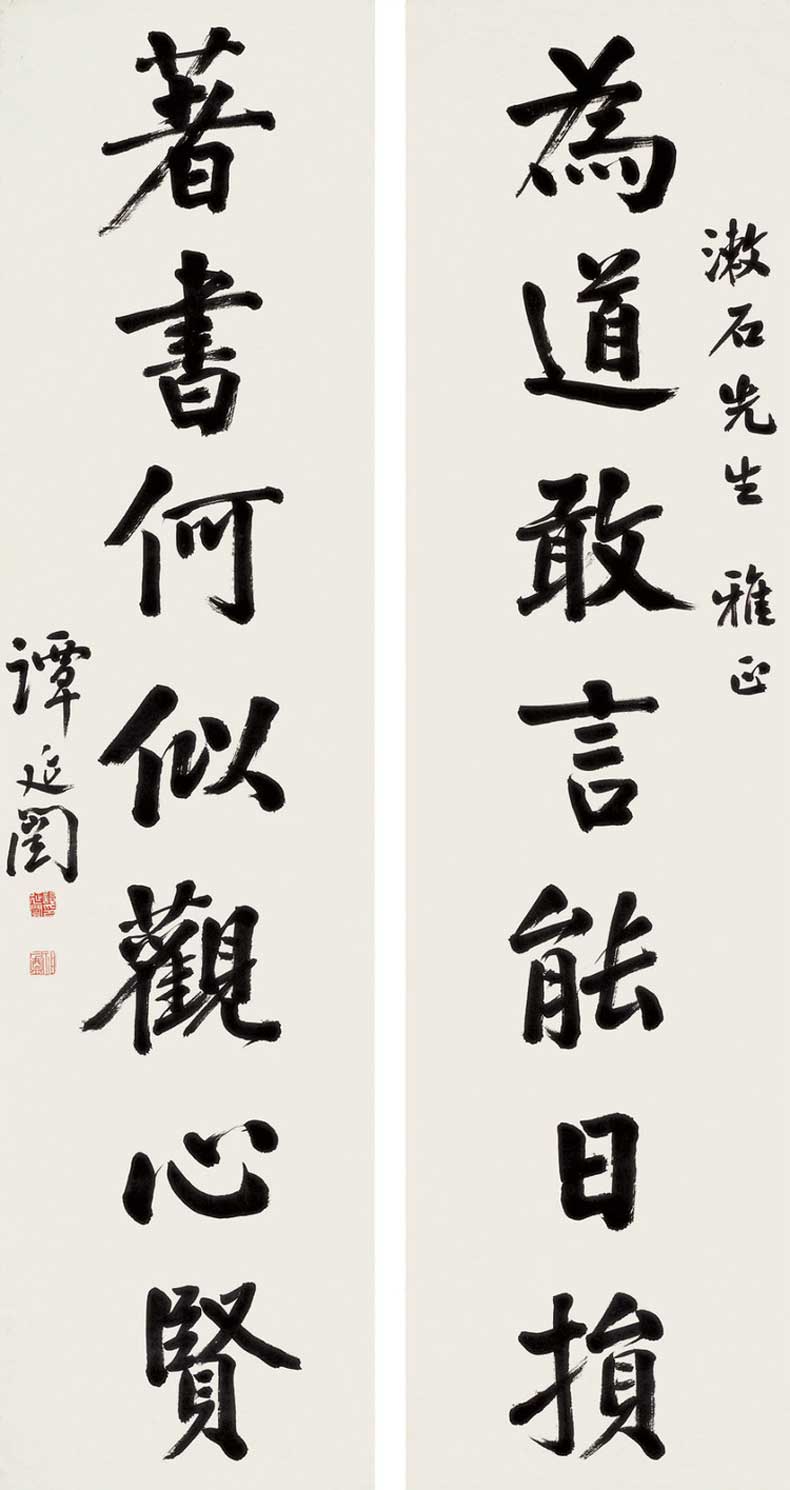 漱石先生 雅正
為道敢言能日損
著書何似觀心賢
譚延闓